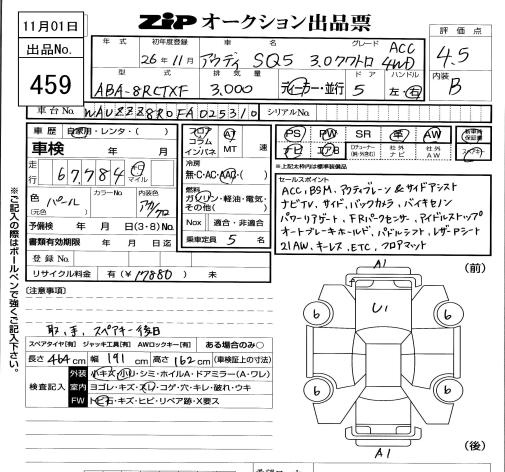 11月01日
出品No.
459
ZIP オークション出品票
年式 初年度登録 車名 グレード
26年11月 アウディ SQ5 3.0クワトロ ACC 4WD
型式 排気量 ドア ハンドル
ABA-8RCTXF 3,000 ディーラー・並行 5 左・右
評価点
4.5
内装
B
車台No. WAUZZZ8R0FA025310 シリアルNo.
車歴 自家用・レンタ・( )
車検 年 月
走行 67,784 km マイル
色 パール
(元色)
カラーNo. 内装色
予備検 年 月 日(3・8)No.
書類有効期限 年 月 日迄
登録No.
リサイクル料金 有(¥17880) 未
フロア コラム インパネ AT MT 速
冷房
無・C・AC・AAC・( )
燃料
ガソリン・軽油・電気・その他( )
Nox 適合・非適合
乗車定員 5 名
PS PW SR 革 AW 新車時保証書
ナビ エアB 社外ナビ 社外AW
※上記太枠内は標準装備品
セールスポイント
ACC,BSM,アクティブレーン&サイドアシスト
ナビTV,サイド,バックカメラ,バイキセノン
パワーリアゲート,FRパークセンサー,アイドルストップ
オートブレーキホールド,パドルシフト,レザーPシート
21AW,キーレス,ETC,フロアマット
〔注意事項〕
取,手,スペアキー後日
スペアタイヤ[有] ジャッキ工具[有] AWロックキー[有] ある場合のみ○
長さ 464cm 幅 191cm 高さ 162cm (車検証上の寸法)
検査記入
外装 小キズ・小凹・シミ・ホイルA・ドアミラー(A・ワレ)
室内 ヨゴレ・キズ・スレ・コゲ・穴・キレ・破れ・ウキ
FW トビ石・キズ・ヒビ・リペア跡・X要ス
A1 (前)
U1
6 6
6 6
A1 (後)
※ご記入の際はボールペンで強くご記入下さい。